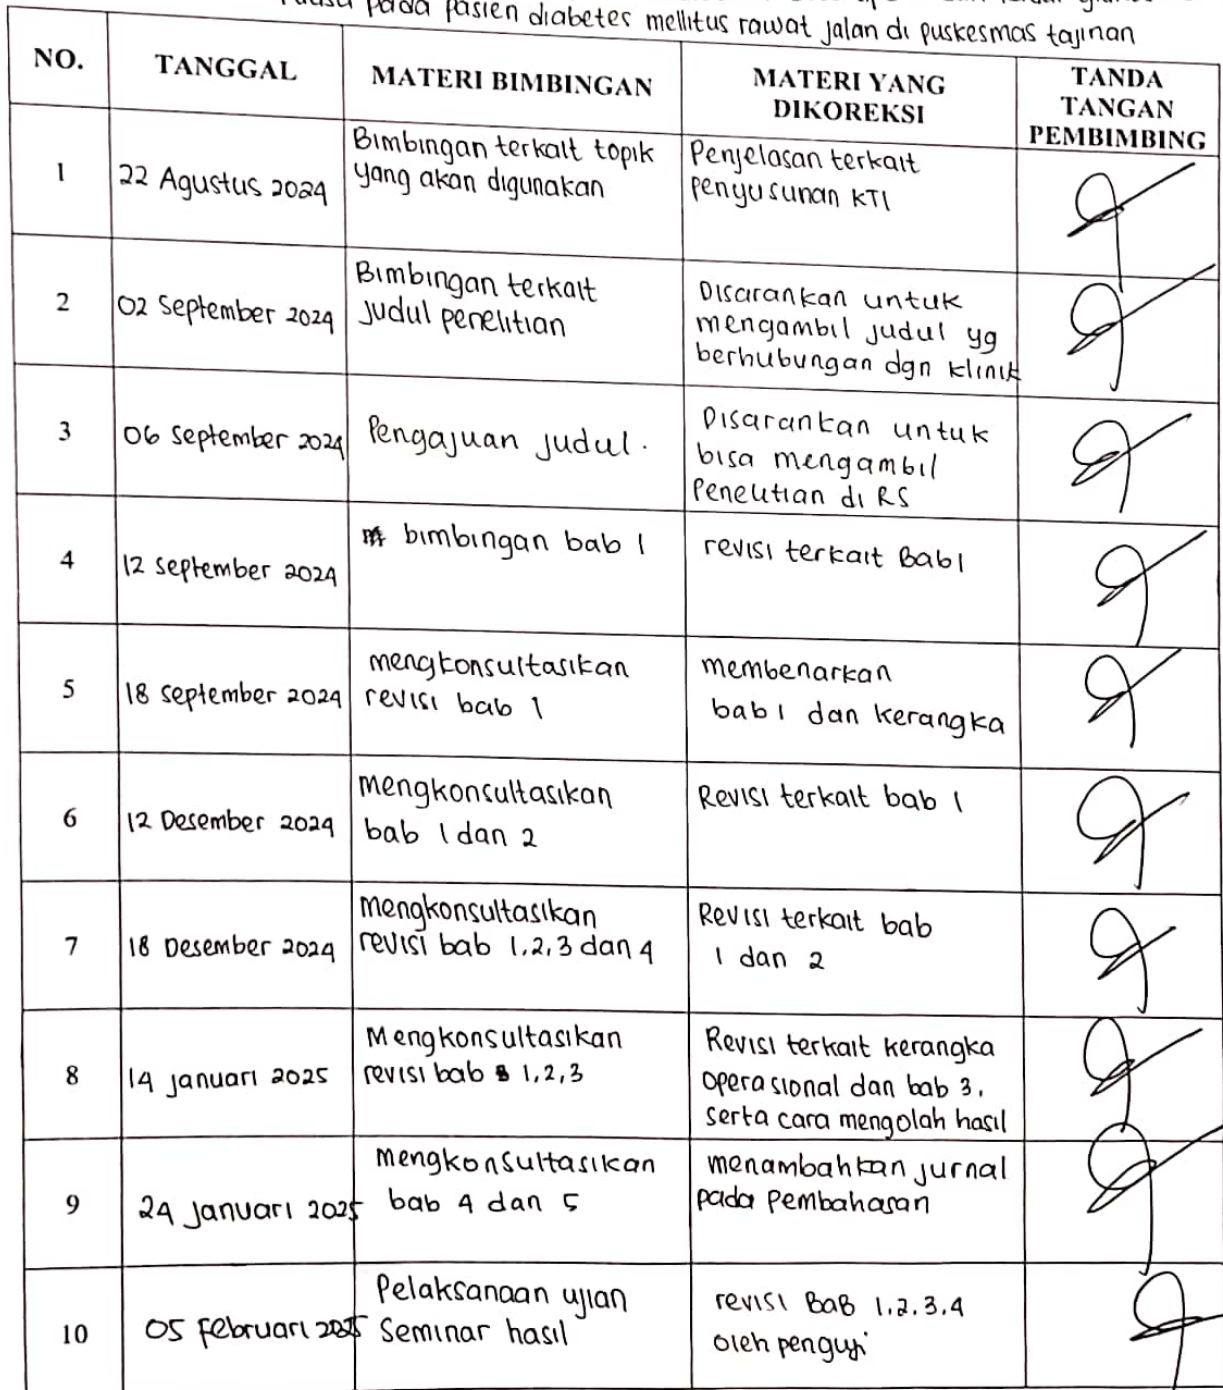 pada pasien diabetes mellitus rawat jalan di puskesmas tajinan
NO.
TANGGAL
MATERI BIMBINGAN
MATERI YANG
DIKOREKSI
TANDA
TANGAN
PEMBIMBING
1
22 Agustus 2024
Bimbingan terkait topik
yang akan digunakan
Penjelasan terkait
penyusunan KTI
2
02 September 2024
Bimbingan terkait
judul penelitian
Disarankan untuk
mengambil judul yg
berhubungan dgn klinik
3
06 September 2024
Pengajuan judul.
Disarankan untuk
bisa mengambil
Penelitian di RS
4
12 September 2024
bimbingan bab 1
revisi terkait Bab 1
5
18 September 2024
mengkonsultasikan
revisi bab 1
membenarkan
bab 1 dan kerangka
6
12 Desember 2024
mengkonsultasikan
bab 1 dan 2
Revisi terkait bab 1
7
18 Desember 2024
mengkonsultasikan
revisi bab 1,2,3 dan 4
Revisi terkait bab
1 dan 2
8
14 Januari 2025
Mengkonsultasikan
revisi bab 1,2,3
Revisi terkait kerangka
operasional dan bab 3.
serta cara mengolah hasil
9
24 Januari 2025
mengkonsultasikan
bab 4 dan 5
menambahkan jurnal
pada Pembahasan
10
05 Februari 2025
Pelaksanaan ujian
Seminar hasil
revisi BAB 1.2.3.4
oleh penguji